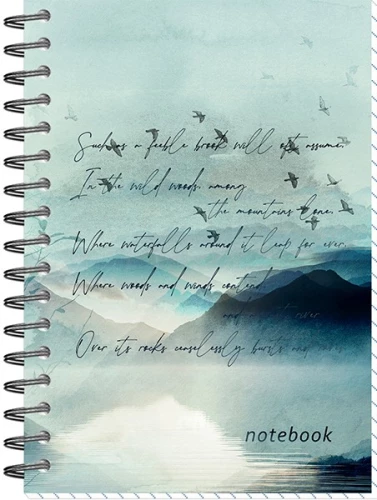 Such as a feeble brook will oft assume
In the wild woods, among
the mountains lone,
Where waterfalls around it leap for ever,
Where woods and winds contend,
and river
Over its rocks ceaselessly bursts and
notebook